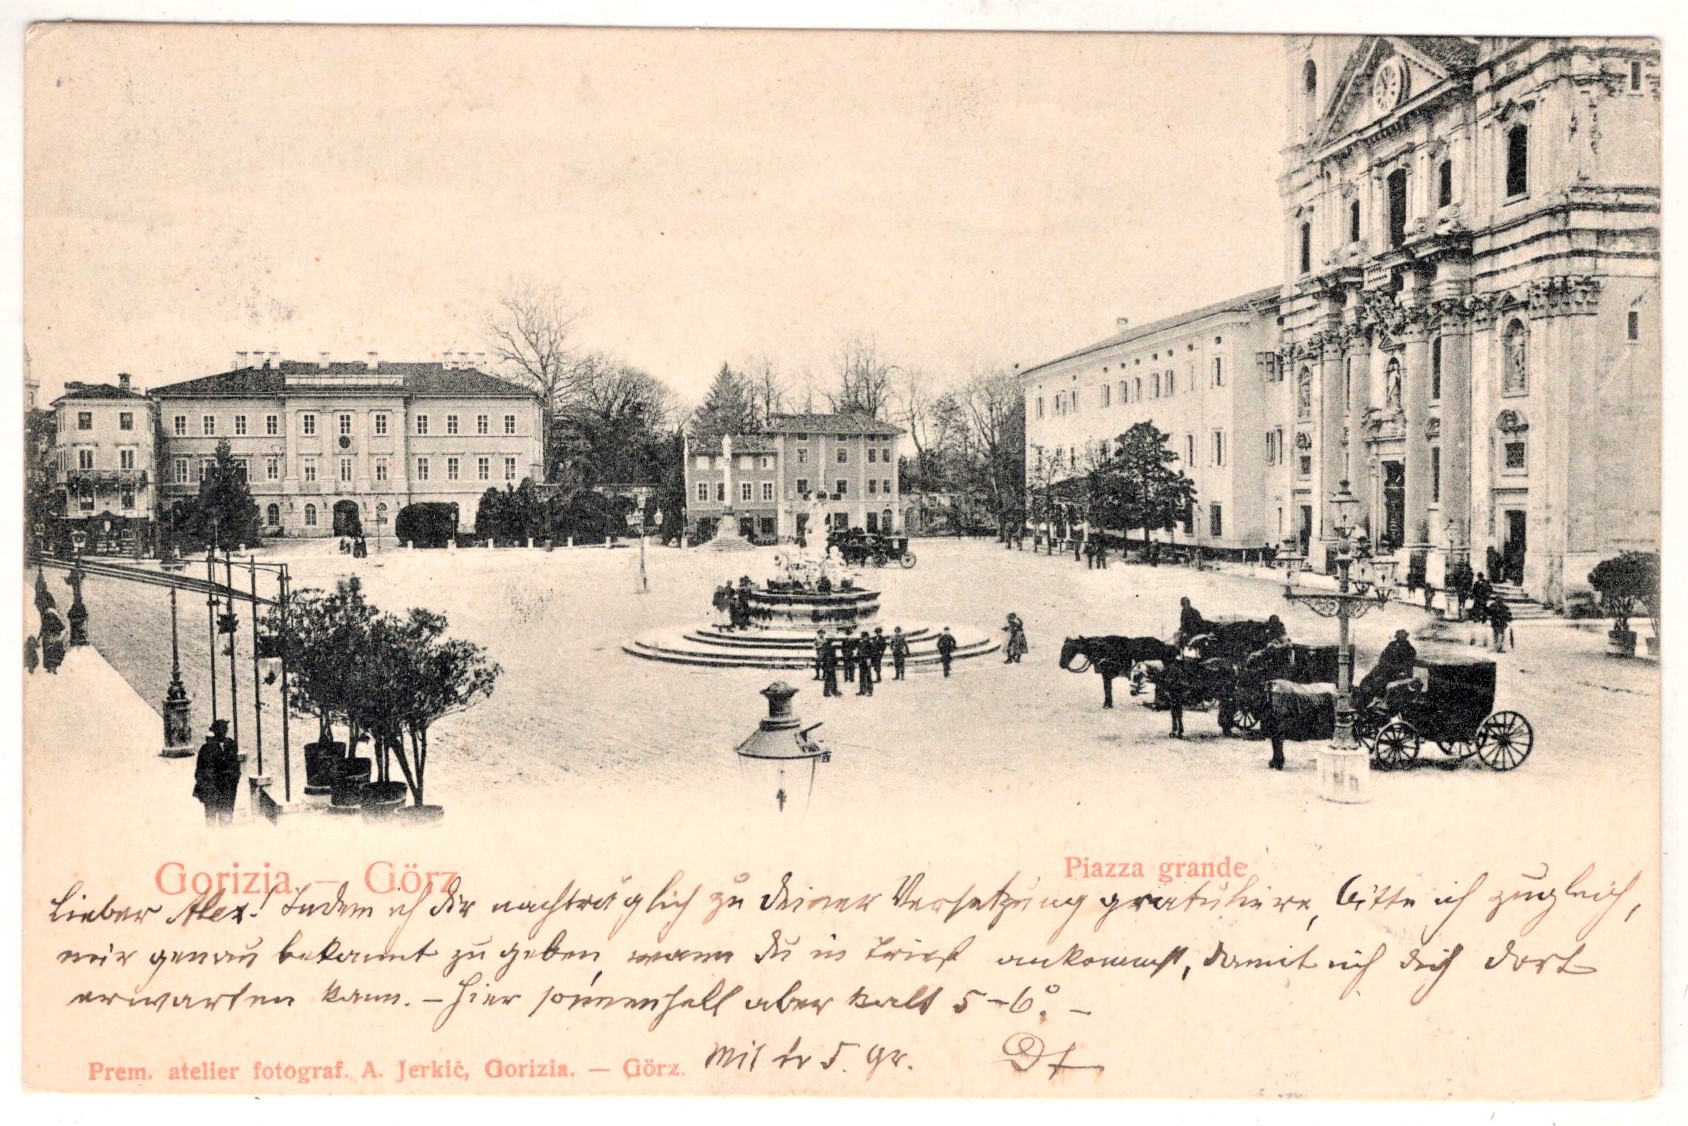 Gorizia. — Görz.
Piazza grande
Lieber Alex! Indem ich dir nachträglich zu deiner Versetzung gratuliere, bitte ich zugleich,
mir genau bekannt zu geben, wann du in Triest ankommst, damit ich dich dort
erwarten kann. – Hier sonnenhell aber kalt 5–6°. –
Mit
Gr.
Prem. atelier fotograf. A. Jerkič, Gorizia. — Görz.